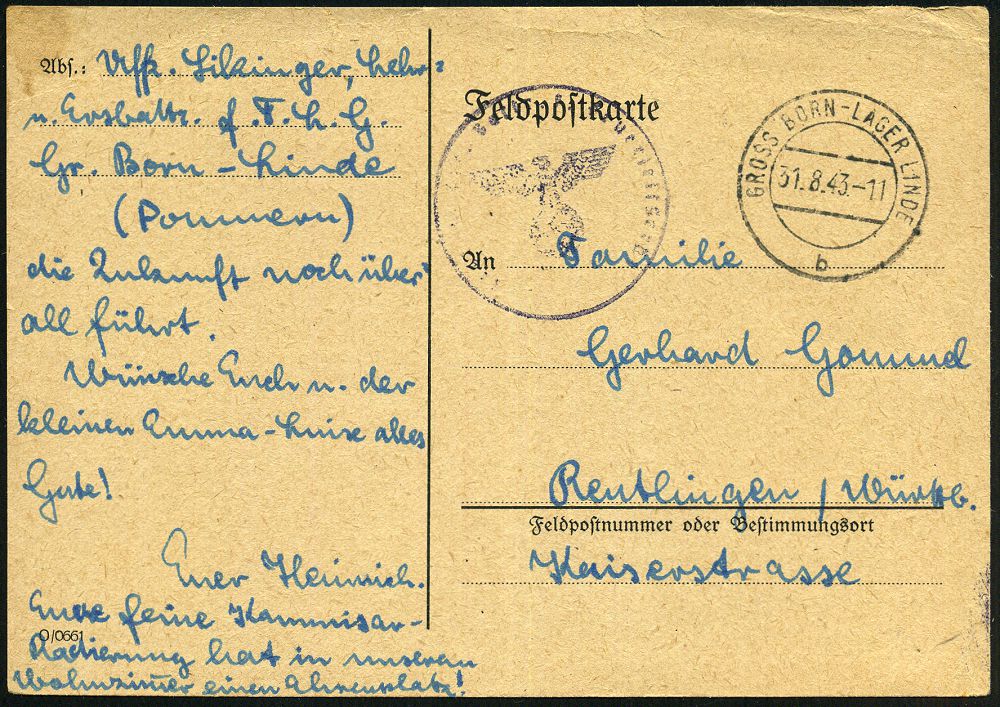 Abs.: Uffz. Silzinger, Lehr=
u. Ersbattr. f. F. H. G.
Gr. Born - Linde
(Pommern)
die Zukunft noch über=
all führt.
Wünsche Euch u. der
kleinen Emma-Luise alles
Gute!
Euer Heinrich.
Eure feine Kammisar-
Radierung hat in unserem
Wohnzimmer einen Ehrenplatz!
O/0661
Feldpostkarte
GROSS BORN-LAGER LINDE
31.8.43.-11
b
An Familie
Gerhard Gomund
Reutlingen / Württb.
Feldpostnummer oder Bestimmungsort
Kaiserstrasse